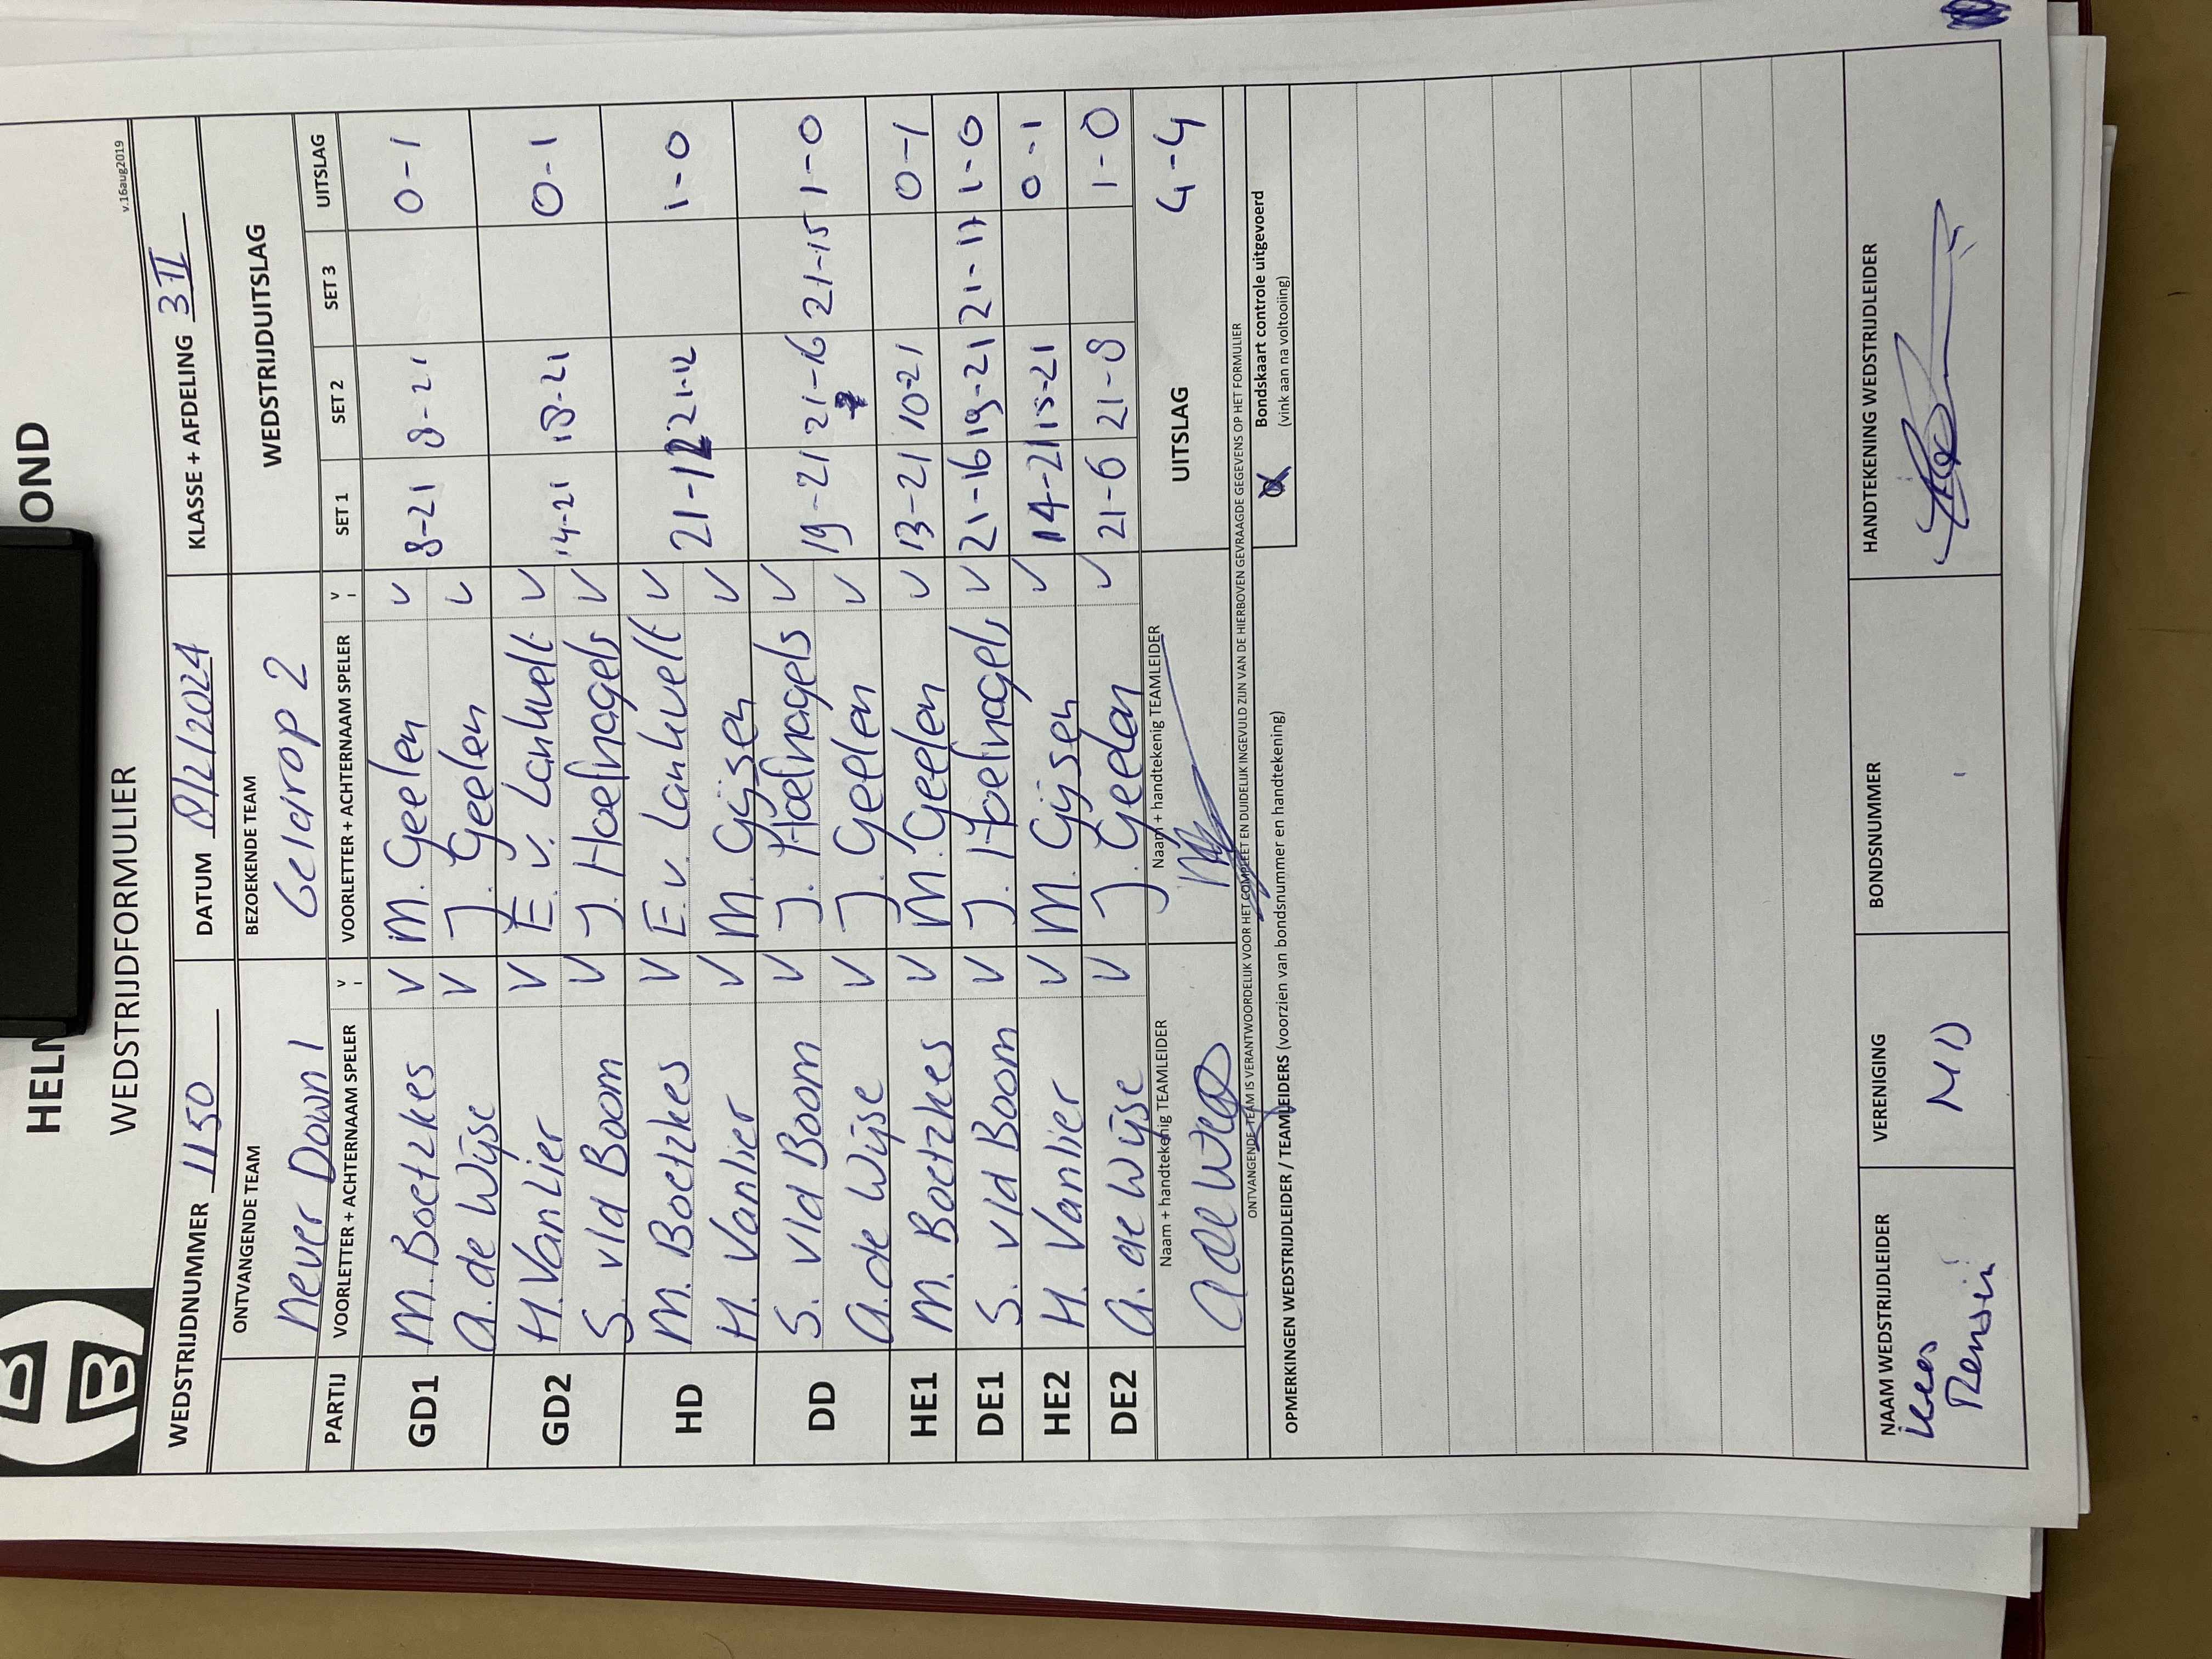 HELM OND
WEDSTRIJDFORMULIER
v.16aug2019
WEDSTRIJDNUMMER 1150 DATUM 8/2/2024 KLASSE + AFDELING 3 II
ONTVANGENDE TEAM BEZOEKENDE TEAM WEDSTRIJDUITSLAG
Never Down 1 Geldrop 2
PARTIJ VOORLETTER + ACHTERNAAM SPELER V VOORLETTER + ACHTERNAAM SPELER V SET 1 SET 2 SET 3 UITSLAG
GD1 M. Boetzkes V M. Geelen V 8-21 8-21 0-1
A. de Wijse V J. Geelen V
GD2 H. Van Lier V E. v. Lankvelt V 14-21 18-21 0-1
S. v/d Boom V J. Hoefnagels V
HD M. Boetzkes V E. v. Lankvelt V 21-12 21-12 1-0
H. Vanlier V M. Gijsen V
DD S. v/d Boom V J. Hoefnagels V 19-21 21-16 21-15 1-0
A. de Wijse V J. Geelen V
HE1 M. Boetzkes V M. Geelen V 13-21 10-21 0-1
DE1 S. v/d Boom V J. Hoefnagels V 21-16 19-21 21-17 1-0
HE2 H. Vanlier V M. Gijsen V 14-21 15-21 0-1
DE2 A. de Wijse V J. Geelen V 21-6 21-8 1-0
Naam + handtekenig TEAMLEIDER Naam + handtekenig TEAMLEIDER UITSLAG 4-4
ONTVANGENDE TEAM IS VERANTWOORDELIJK VOOR HET COMPLEET EN DUIDELIJK INGEVULD ZIJN VAN DE HIERBOVEN GEVRAAGDE GEGEVENS OP HET FORMULIER
Bondskaart controle uitgevoerd
(vink aan na voltooiing)
OPMERKINGEN WEDSTRIJDLEIDER / TEAMLEIDERS (voorzien van bondsnummer en handtekening)
NAAM WEDSTRIJDLEIDER VERENIGING BONDSNUMMER HANDTEKENING WEDSTRIJDLEIDER
Kees ND